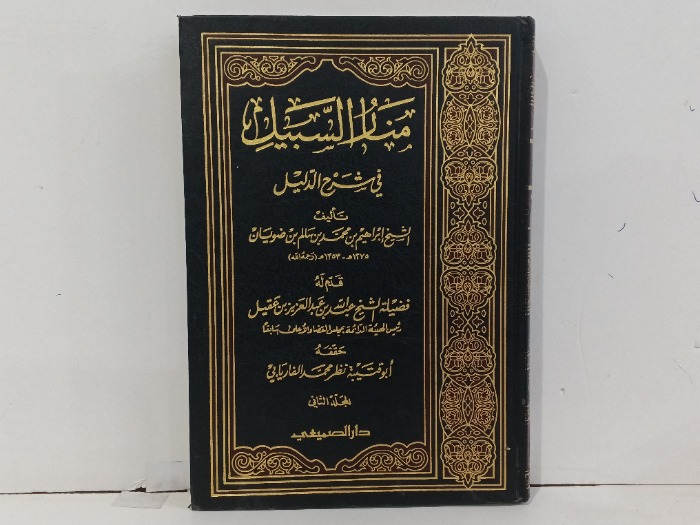 منار السبيل
في شرح الدليل
تأليف
الشيخ إبراهيم بن محمد بن سالم بن ضويان
١٢٧٥هـ - ١٣٥٣هـ (رحمه الله)
قدم له
فضيلة الشيخ عبد الله بن عبد العزيز بن عقيل
رئيس الهيئة الدائمة بمجلس القضاء الأعلى سابقا
حققه
أبو قتيبة نظر محمد الفاريابي
المجلد الثاني
دار الصميعي